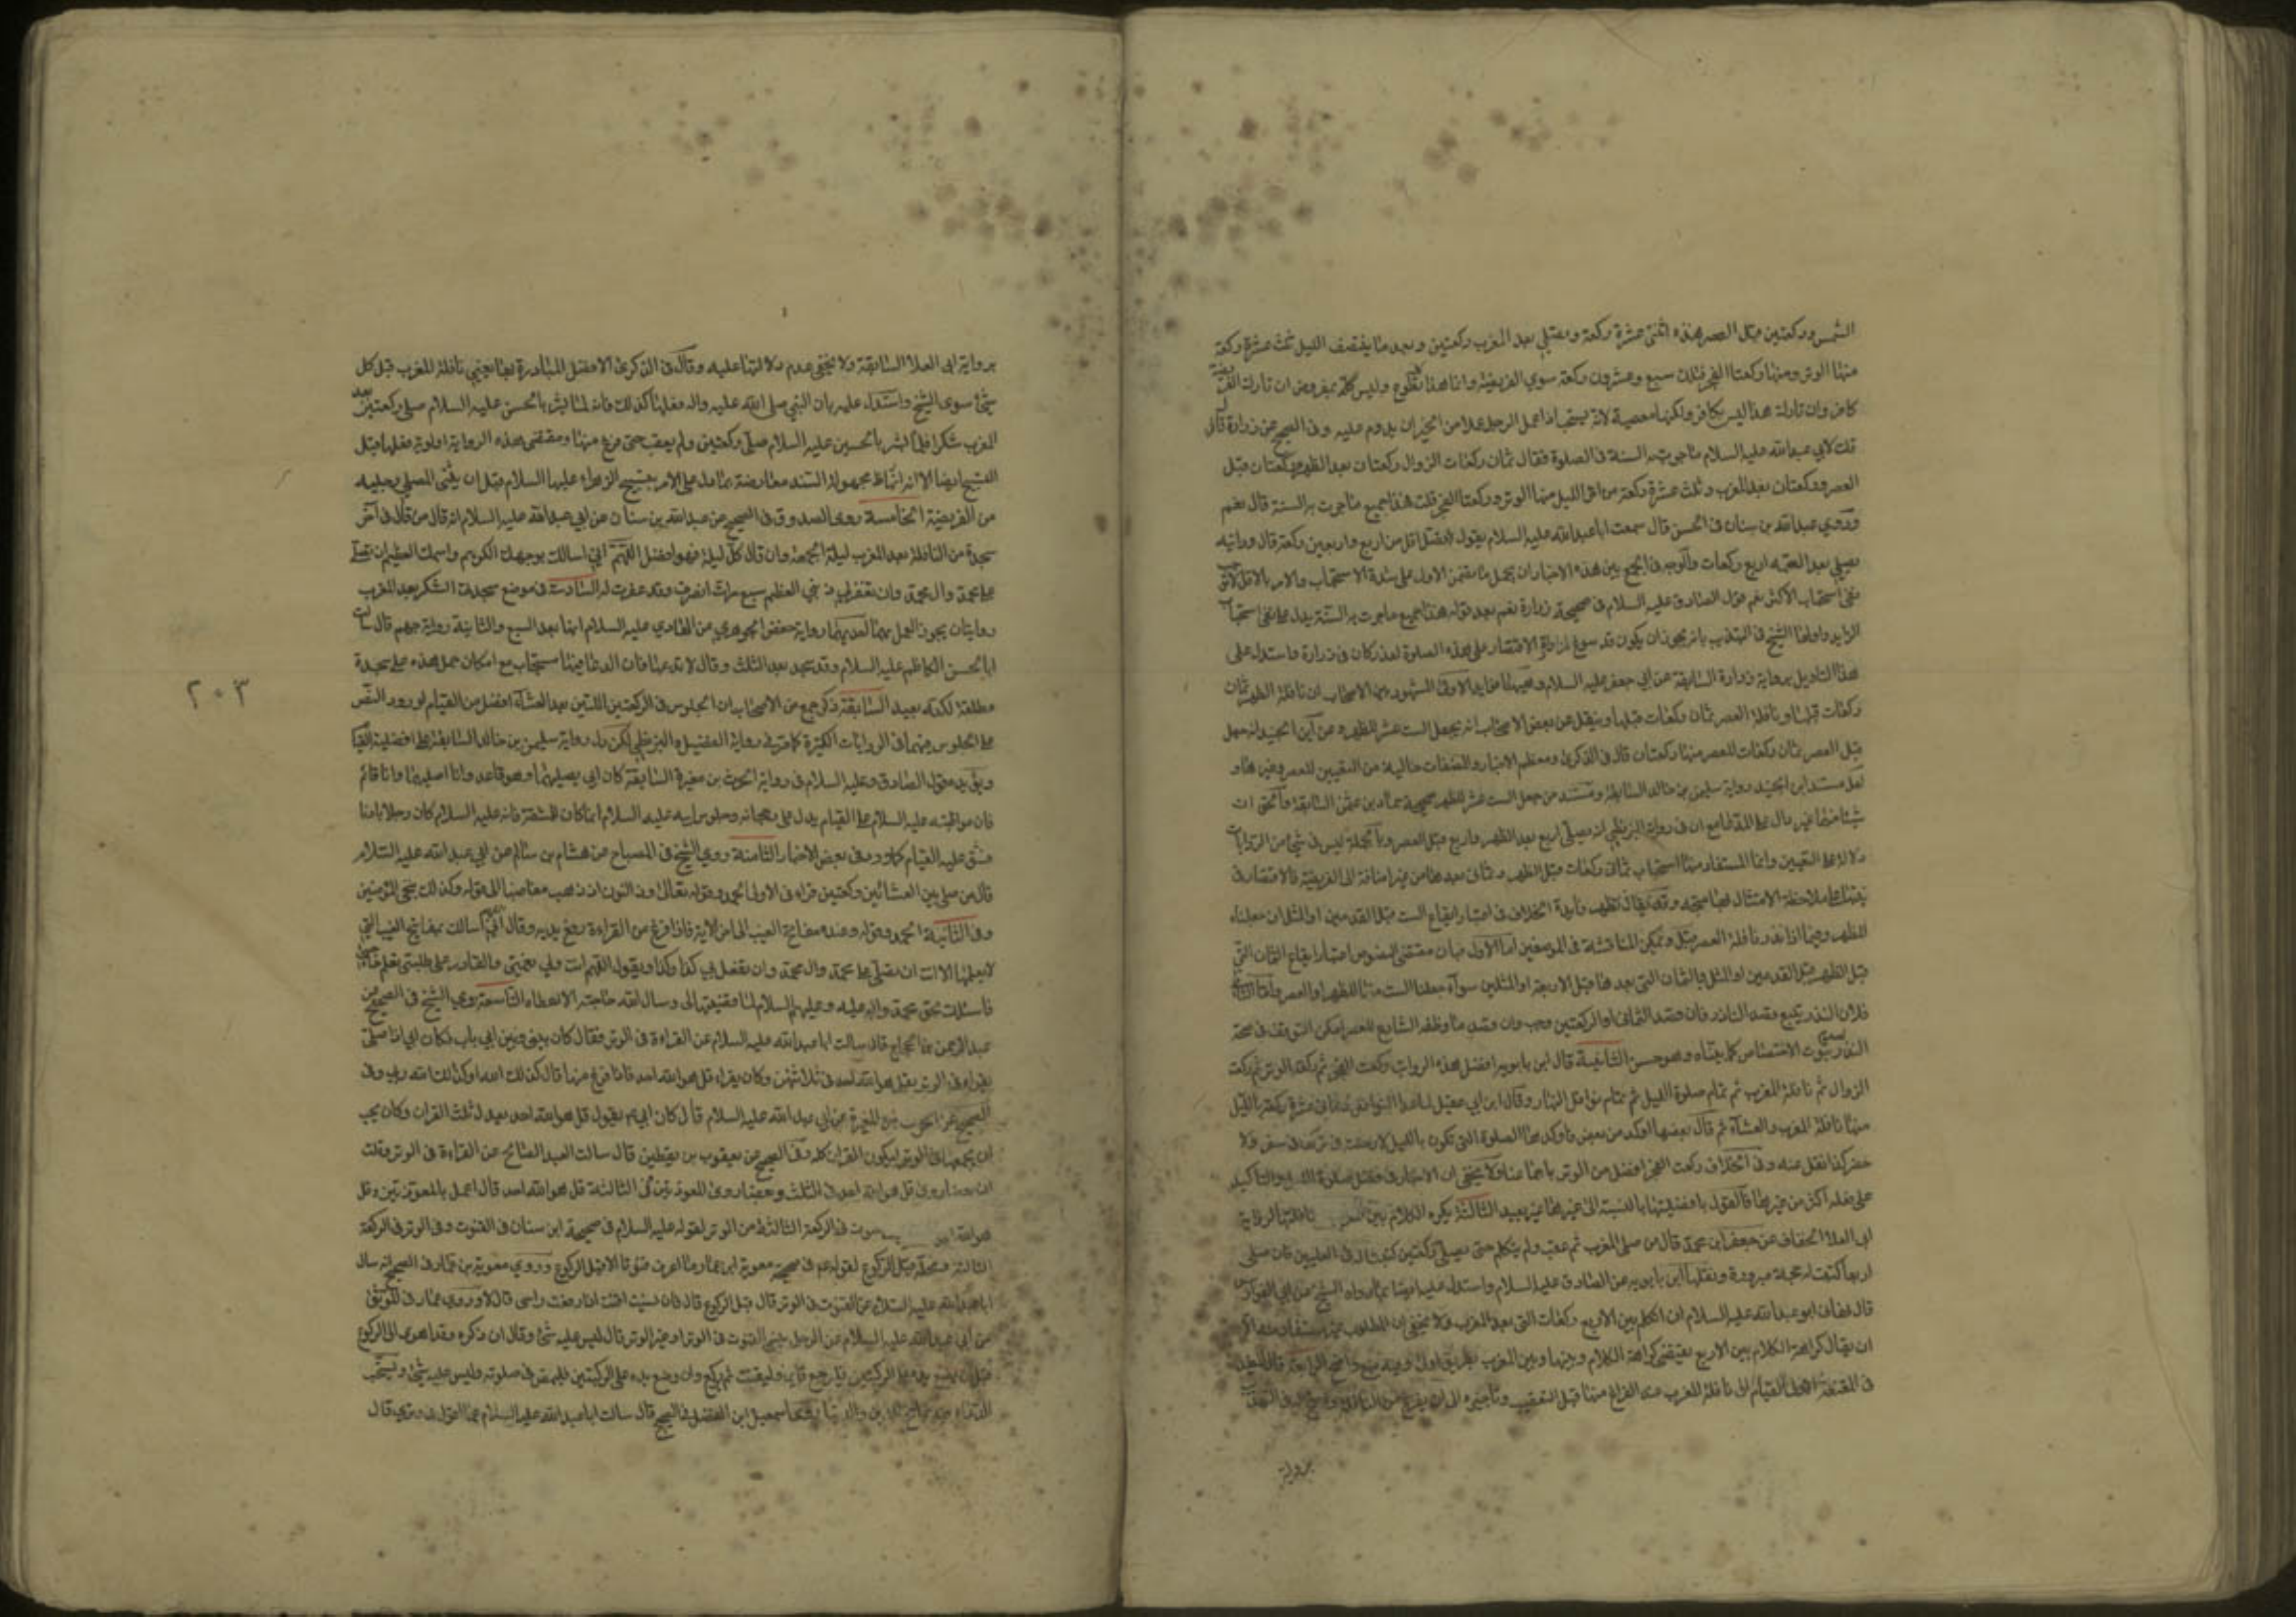 الشمس وركعتين قبل العصر هذه اثنتى عشرة ركعة ويصلي بعد المغرب ركعتين وبعد ما ينتصف الليل ثلث عشرة ركعة
منها الوتر ومنها ركعتا الفجر فتلك سبع وعشرون ركعة سوى الفريضة وانما هذا كله تطوع وليس بمفروض ان تارك الفريضة
كافر وان تارك هذا ليس بكافر ولكنها معصية لانه يستحب اذا عمل الرجل عملا من الخير ان يدوم عليه وفي الصحيح عن زرارة قال
قلت لابي عبدالله عليه السلام ما جرت به السنة في الصلوة فقال ثمان ركعات الزوال وركعتان بعد الظهر وركعتان قبل
العصر وركعتان بعد المغرب وثلث عشرة ركعة من اخر الليل منها الوتر وركعتا الفجر قلت هذا جميع ما جرت به السنة قال نعم
وروي عبدالله بن سنان في الحسن قال سمعت ابا عبدالله عليه السلام يقول لا تصل اقل من اربع واربعين ركعة قال ورايته
يصلي بعد العتمة اربع ركعات والوجه في الجمع بين هذه الاخبار ان يحمل ما تضمن الاول على شدة الاستحباب والامر بالاقل لا يوجب
نفي استحباب الاكثر نعم قول الصادق عليه السلام في صحيحة زرارة نعم بعد قوله هذا جميع ما جرت به السنة يدل على نفي استحباب
الزايد واولها الشيخ في التهذيب بانه يجوز ان يكون قد سوغ لزرارة الاقتصار على هذه الصلوة لعذر كان في زرارة واستدل على
هذا التاويل برواية زرارة السابقة عن ابي جعفر عليه السلام وههنا فوايد الاولى المشهور بين الاصحاب ان نافلة الظهر ثمان
ركعات قبلها ونافلة العصر ثمان ركعات قبلها وينقل عن بعض الاصحاب انه يجعل الست عشر للظهر وعن ابن الجنيد انه جعل
قبل العصر ثمان ركعات للعصر منها ركعتان قال في الذكرى ومعظم الاخبار والمصنفات خالية من التعيين للعصر وغيرها و
لعل مستند ابن الجنيد رواية سليمن بن خالد السابقة ومستند من جعل الست عشر للظهر صحيحة حماد بن عثمن السابقة والحق ان
شيئا منهما غير دال على المدعا مع ان في رواية البزنطي انه يصلي اربع بعد الظهر واربع قبل العصر وبالجملة ليس في شئ من الروايات
دلالة على التعيين وانما المستفاد منها استحباب ثماني ركعات قبل الظهر وثماني بعدها من غير اضافة الى الفريضة فالاقتصار في
نيتها على ملاحظة الامتثال بها متجه وقد يقال تظهر فايدة الخلاف في اعتبار ايقاع الست قبل القدمين او المثل ان جعلناه
للظهر وفيما اذا نذر نافلة العصر قيل ويمكن المناقشة في الموضعين اما الاول فبان مقتضى النصوص اعتبار ايقاع الثمان التي
قبل الظهر قبل القدمين او المثل والثمان التي بعدها قبل الاربعة او المثلين سواء جعلنا الست منها للظهر او العصر واما الثاني
فلان النذر يتبع قصد الناذر فان قصد الثماني او الركعتين وجب وان قصد ما وظفه الشارع للعصر امكن التوقف في صحة
النذر لعدم ثبوت الاختصاص كما بيناه وهو حسن الثانية قال ابن بابويه افضل هذه الرواتب ركعتا الفجر ثم ركعة الوتر ثم ركعتا
الزوال ثم نافلة المغرب ثم تمام صلوة الليل ثم تمام نوافل النهار وقال ابن ابي عقيل لما عد النوافل وثماني عشرة ركعة بالليل
منها نافلة المغرب والعشاء ثم قال بعضها اوكد من بعض واوكدها الصلوة التي تكون بالليل لا رخصة في تركها في سفر ولا
حضر كذا نقل عنه وفي الخلاف ركعتا الفجر افضل من الوتر باجماعنا ولا يخفى ان الاخبار في فضل صلوة الليل والتاكيد
على فعله اكثر من غيرها فالقول بافضليتها بالنسبة الى غيرها غير بعيد الثالثة يكره الكلام بين المغرب ونافلتها لرواية
ابي العلا الخفاف عن جعفر ابن محمد قال من صلى المغرب ثم عقب ولم يتكلم حتى يصلي ركعتين كتبتا له في العليين فان صلى
اربعا كتبت له حجة مبرورة ونقلها ابن بابويه عن الصادق عليه السلام واستدل عليه ايضا بما رواه الشيخ عن ابي الفوارس
قال نهاني ابو عبدالله عليه السلام ان اتكلم بين الاربع ركعات التي بعد المغرب ولا يخفى ان المطلوب غير مستفاد منه اكثر
ان يقال كراهة الكلام بين الاربع يقتضي كراهة الكلام وبينها وبين المغرب بطريق اولى وفيه منع واضح الرابعة قال المفيد
في المقنعة القيام الى نافلة المغرب عند الفراغ منها قبل التعقيب وتاخيره الى ان يفرغ من النافلة واحتج له في التهذيب
برواية
برواية ابي العلا السابقة ولا يخفى عدم دلالتها عليه وقال في الذكرى الافضل المبادرة بها يعني نافلة المغرب قبل كل
شئ سوى التسبيح واستدل عليه بان النبي صلى الله عليه واله فعلها كذلك فانه لما بشر بالحسن عليه السلام صلى ركعتين بعد
المغرب شكرا فلما بشر بالحسين عليه السلام صلى ركعتين ولم يعقب حتى فرغ منها ومقتضى هذه الرواية اولوية فعلها قبل
التسبيح ايضا الا انها مجهولة السند معارضة بما دل على الامر بتسبيح الزهراء عليها السلام قبل ان يثنى المصلي رجليه
من الفريضة الخامسة روى الصدوق في الصحيح عن عبدالله بن سنان عن ابي عبدالله عليه السلام انه قال من قال في آخر
سجدة من النافلة بعد المغرب ليلة الجمعة وان قال كل ليلة فهو افضل اللهم اني اسالك بوجهك الكريم واسمك العظيم ان تصلي
على محمد وال محمد وان تغفر لي ذنبي العظيم سبع مرات انصرف وقد غفر له السادسة في موضع سجدة الشكر بعد المغرب
روايتان يجوز العمل بهما احديهما رواية حفص الجوهري عن الهادي عليه السلام انها بعد السبع والثانية رواية جهم قال رايت
ابا الحسن الكاظم عليه السلام وقد سجد بعد الثلث وقال لا تدعها فان الدعا فيها مستجاب مع امكان حمل هذه على سجدة
مطلقة لكنه بعيد السابقة ذكر جمع من الاصحاب ان الجلوس في الركعتين اللتين بعد العشاء افضل من القيام لورود النص
على الجلوس فيهما في الروايات الكثيرة كما مر في رواية الفضيل والبزنطي لكن دل رواية سليمن بن خالد السابقة على افضلية القيام
ويؤيده قول الصادق عليه السلام في رواية الحرث بن مغيرة السابقة كان ابي يصليهما وهو قاعد وانا اصليهما وانا قائم
فان مواظبته عليه السلام على القيام يدل على رجحانه وجلوس ابيه عليه السلام انما كان للمشقة فانه عليه السلام كان رجلا بادنا
يشق عليه القيام كما ورد في بعض الاخبار الثامنة روى الشيخ في المصباح عن هشام بن سالم عن ابي عبدالله عليه السلام
قال من صلى بين العشائين ركعتين قراء في الاولى الحمد وقوله تعالى وذا النون اذ ذهب مغاضبا الى قوله وكذلك ننجي المؤمنين
وفي الثانية الحمد وقوله وعنده مفاتح الغيب الى اخر الاية فاذا فرغ من القراءة رفع يديه وقال اللهم اني اسالك بمفاتح الغيب التي
لا يعلمها الا انت ان تصلي على محمد وال محمد وان تفعل بي كذا وكذا ويقول اللهم انت ولي نعمتي والقادر على طلبتي تعلم حاجتي
فاسئلك بحق محمد واله عليه وعليهم السلام لما قضيتها لي وسال الله حاجته الا اعطاه التاسعة روى الشيخ في الصحيح عن
عبدالرحمن بن الحجاج قال سالت ابا عبدالله عليه السلام عن القراءة في الوتر فقال كان بيني وبين ابي باب فكان ابي اذا صلى
يقراء في الوتر بقل هو الله احد في ثلاثتهن وكان يقراء قل هو الله احد فاذا فرغ منها قال كذلك الله او كذلك الله ربي وفي
الصحيح عن الحرث بن المغيرة عن ابي عبدالله عليه السلام قال كان ابي يقول قل هو الله احد يعدل ثلث القران وكان يحب
ان يجمعها في الوتر ليكون القران كله وفي الصحيح عن يعقوب بن يقطين قال سالت العبد الصالح عن القراءة في الوتر وقلت
ان بعضا روى قل هو الله احد في الثلث وبعضا روى المعوذتين وفي الثالثة قل هو الله احد قال اعمل بالمعوذتين وقل
هو الله احد القنوت في الركعة الثالثة من الوتر لقوله عليه السلام في صحيحة ابن سنان في القنوت وفي الوتر في الركعة
الثالثة ومحله قبل الركوع لقوله ع في صحيحة معوية ابن عمار ما اعرف قنوتا الا قبل الركوع وروي معوية بن عمار في الصحيح انه سال
ابا عبدالله عليه السلام عن القنوت في الوتر قال قبل الركوع قال فان نسيت اقنت اذا رفعت راسى قال لا وروى عمار في الموثق
عن ابي عبدالله عليه السلام عن الرجل ينسى القنوت في الوتر او غير الوتر قال ليس عليه شئ وقال ان ذكره وقد اهوى الى الركوع
قبل ان يضع يده على الركبتين فليرجع قايما وليقنت ثم ليركع وان وضع يده على الركبتين فليمض في صلوته وليس عليه شئ ويستحب
الدعاء فيه اسمعيل ابن الفضل في الصحيح قال سالت ابا عبدالله عليه السلام عما اقول في وتري قال
٢٠٣